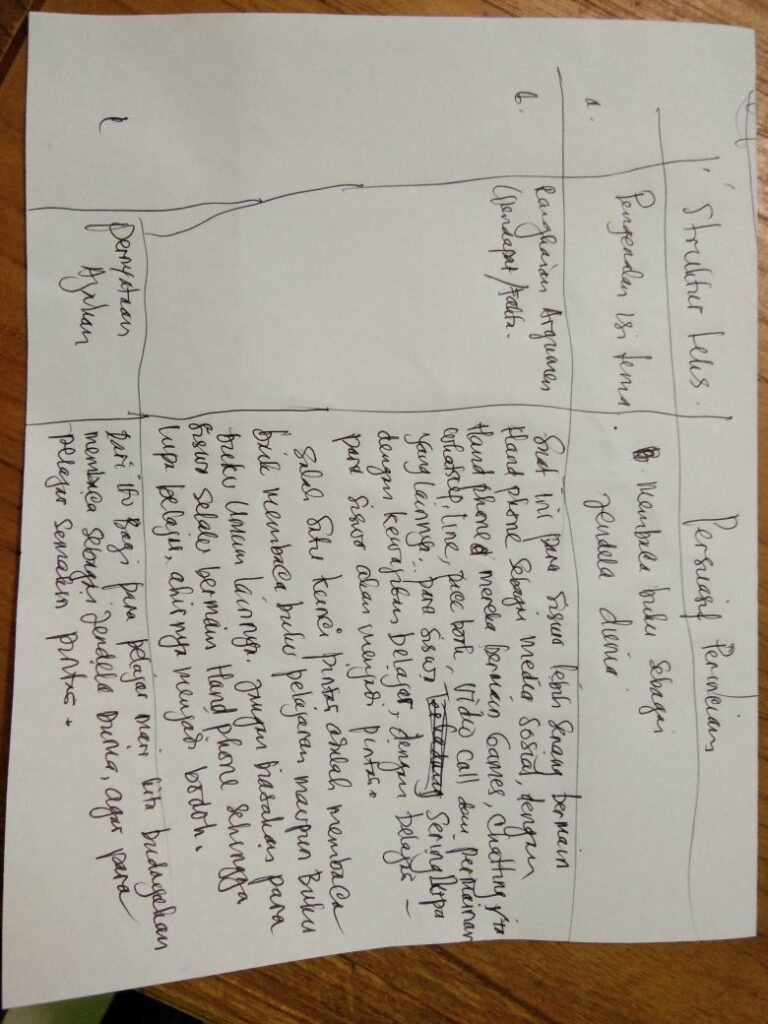 Struktur teks. Persuasif Perincian
a. Pengenalan isi tema. Membaca buku sebagai
jendela dunia
b. Rangkaian Argumen
(Pendapat/Fakta.
Saat ini para siswa lebih senang bermain
Handphone sebagai media sosial, dengan
Handphone mereka bermain Games, chatting
whatsap, Line, Face book, Video call dan permainan
yang lainnya. para siswa sering lupa
dengan kewajiban belajar, dengan belajar
para siswa akan menjadi pintar.
Salah satu kunci pintar adalah membaca
baik membaca buku pelajaran maupun Buku
buku Umum lainnya. jangan biasakan para
siswa selalu bermain Handphone sehingga
lupa belajar, ahirnya menjadi bodoh.
c Pernyataan
Ajakan
Dari itu Bagi para pelajar mari kita budayakan
membaca sebagai jendela Dunia, agar para
pelajar semakin pintar.